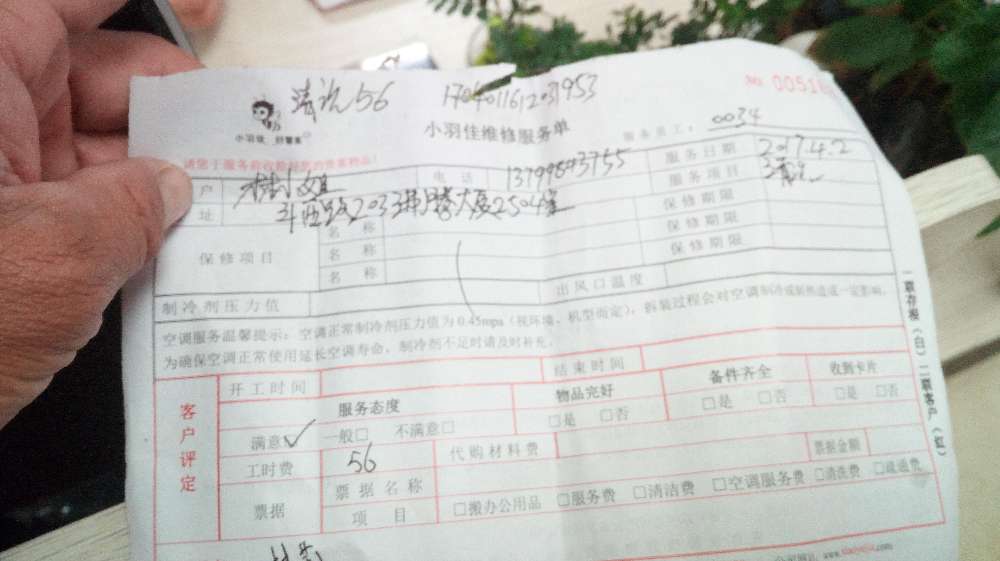 清洗56 1704011612031953
№ 00518
小羽佳 好管家
小羽佳维修服务单
服务员工: 0034
请您于服务前收捡好您的贵重物品!
户 小姐 电话 服务日期 2017.4.2
址 2504室 服务项目 清洗
保修项目
名称 保修期限
名称 保修期限
名称 保修期限
制冷剂压力值 出风口温度
空调服务温馨提示:空调正常制冷剂压力值为0.45mpa(视环境、机型而定),拆装过程会对空调制冷或制热造成一定影响,
为确保空调正常使用延长空调寿命,制冷剂不足时请及时补充。
客户评定
开工时间 结束时间
服务态度 物品完好 备件齐全 收到卡片
满意✓ 一般□ 不满意□ □是 □否 □是 □否 □是 □否
工时费 56 代购材料费 票据金额
票据 票据名称
项目 □搬办公用品 □服务费 □清洁费 □空调服务费 □清洗费 □疏通费
一联存根(白) 二联客户(红)